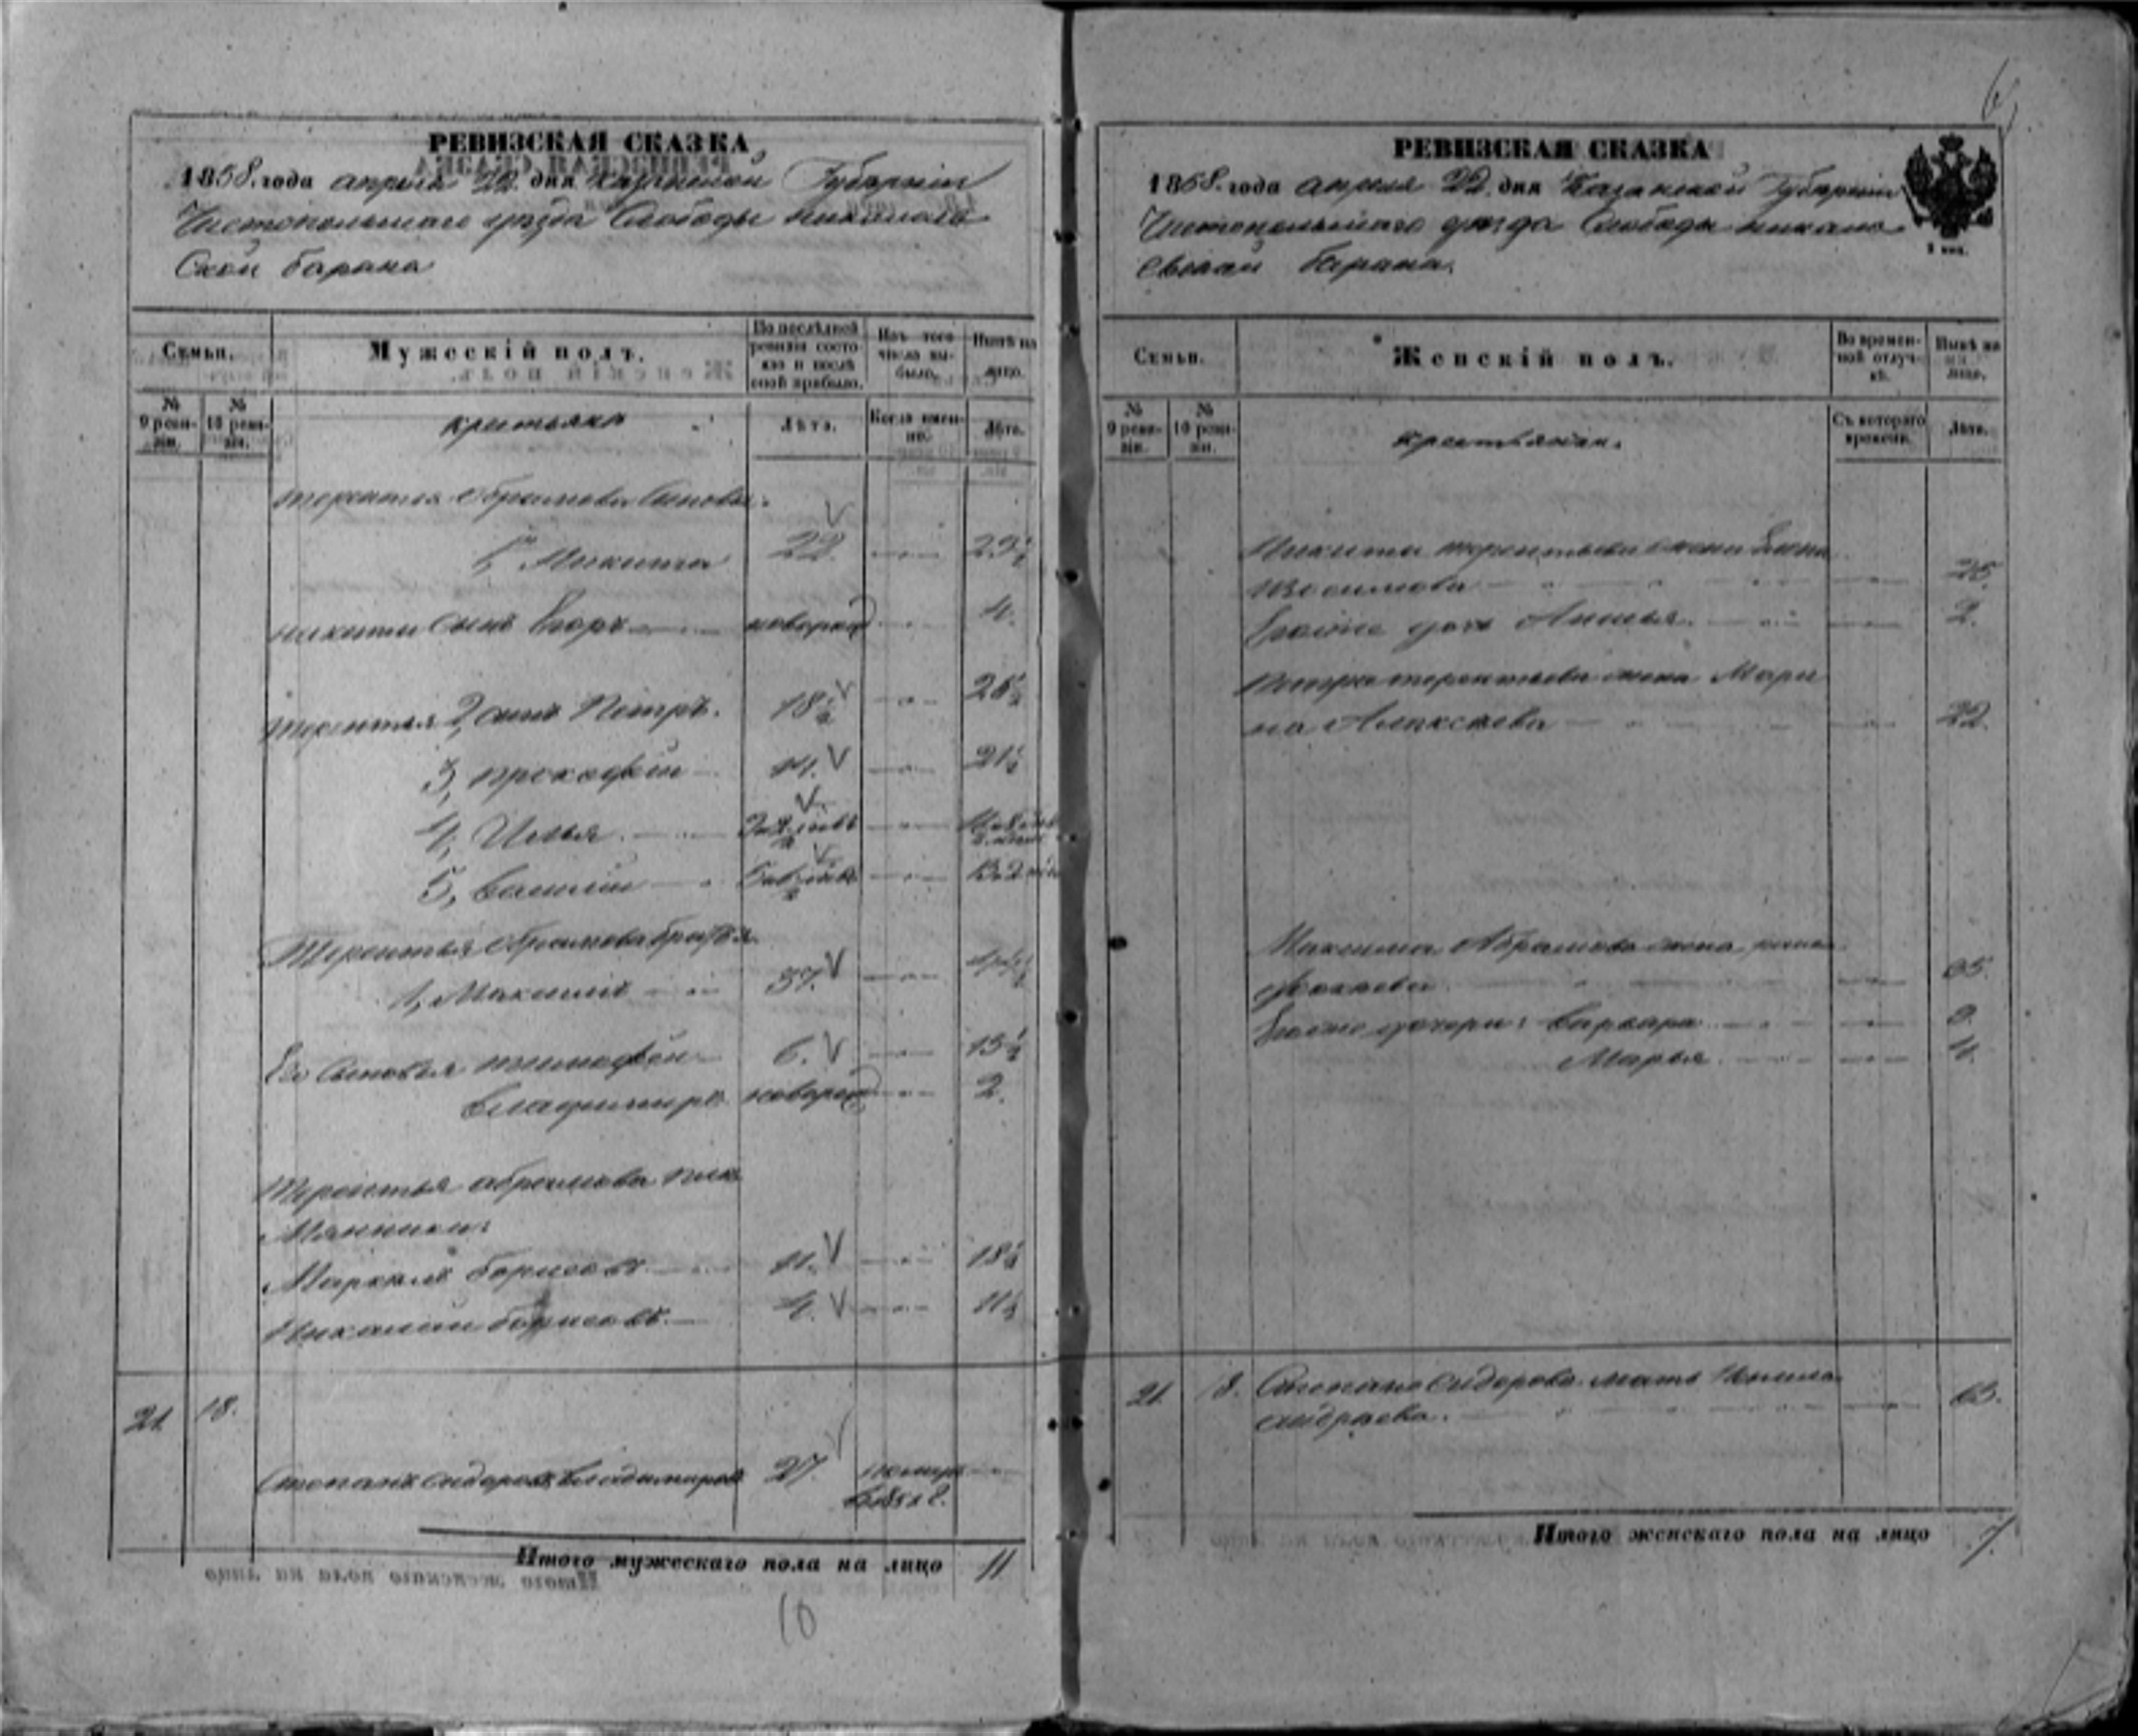 РЕВИЗСКАЯ СКАЗКА
1858. года апреля 22. дня Казанской Губернии
Чистопольскаго уезда Слободы николаев
Ской барана
Семьи.
Мужескій полъ.
По послѣдней ревизіи состояло и послѣ оной прибыло.
Изъ того числа выбыло.
Нынѣ на лицо.
№ 9 ревизіи.
№ 10 ревизіи.
крестьяне
Лѣта.
Когда именно.
Лѣта.
терентья Абрамова Сыновья.
1, Никита 22. 29½
никиты Сынъ Егоръ новорож 4.
терентья 2, сынъ Петръ. 18½ 25½
3, прокофей 14. 21½
4, Илья.
5, василий
Терентья абрамова братья
1, Максимъ 37.
Его Сыновья тимофей 6. 13½
владимиръ новорож 2.
Терентья абрамова пле
мянники:
Маркелъ борисовъ 11. 18½
Николай борисовъ. 4. 11½
21. 18.
Степанъ сидоровъ владимировъ 27. помер
Итого мужескаго пола на лицо 11
10
6
РЕВИЗСКАЯ СКАЗКА
1858. года апреля 22. дня Казанской Губернии
Чистопольскаго уезда Слободы никола
евской барана.
Семьи.
Женскій полъ.
Во временной отлучкѣ.
Нынѣ на лицо.
№ 9 ревизіи.
№ 10 ревизіи.
крестьянки.
Съ котораго времени.
Лѣта.
Никиты терентьева жена 25.
Егоже дочь 2.
Петра терентьева жена Мари
на Алексеева 22.
Максима Абрамова жена
35.
Егоже дочери: варвара 9.
Марья 4.
21. 18. Степана Сидорова мать
андреева. 63.
Итого женскаго пола на лицо 7.